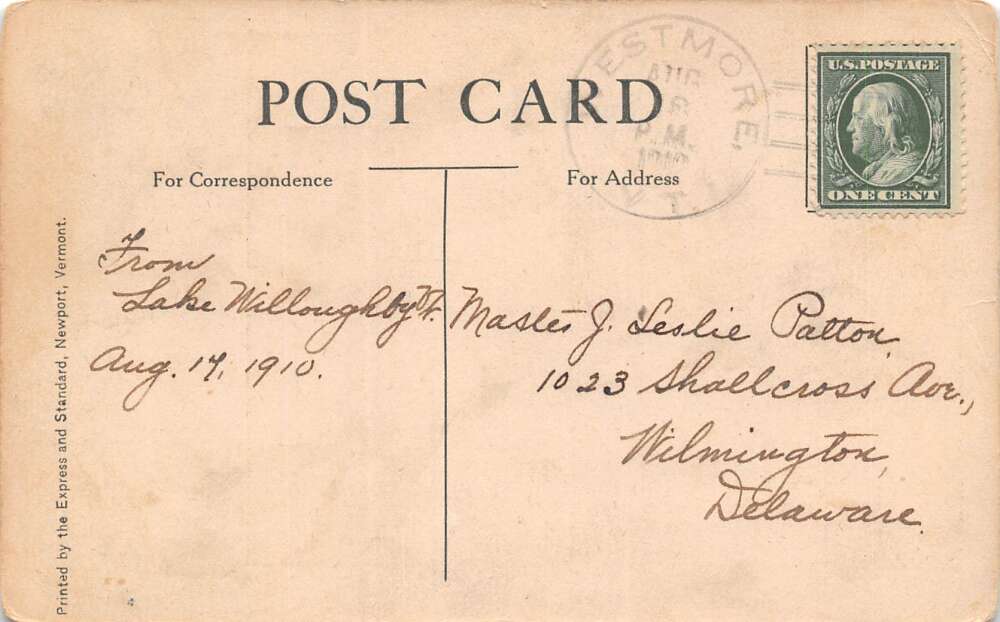 POST CARD
WESTMORE,
AUG
6
P.M.
1910
VT.
U.S. POSTAGE
ONE CENT
For Correspondence
For Address
From
Lake Willoughby Vt.
Aug. 17, 1910.
Master J. Leslie Patton,
1023 Shallcross Ave.,
Wilmington,
Delaware.
Printed by the Express and Standard, Newport, Vermont.